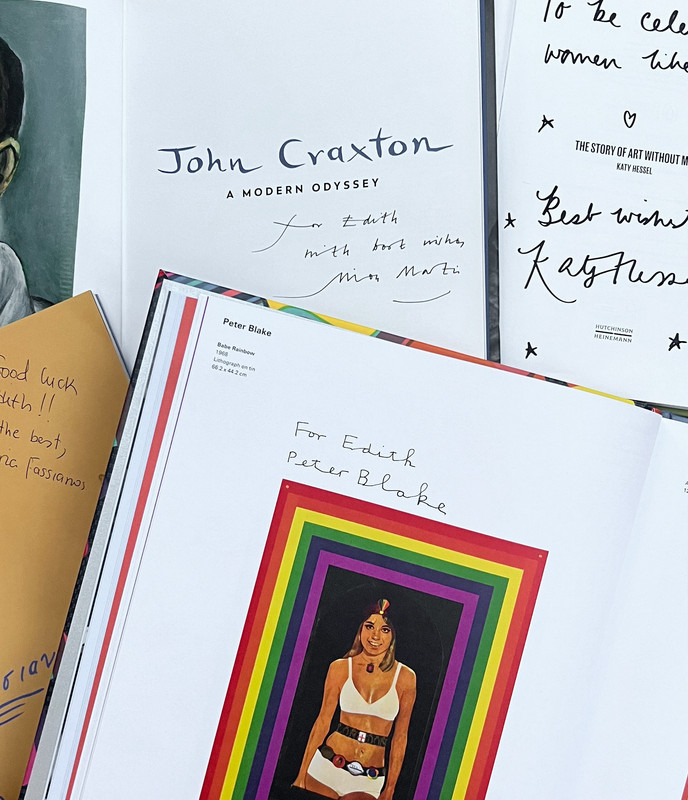 John Craxton
A MODERN ODYSSEY
For Edith
with best wishes
Martin
To be cele
women like
THE STORY OF ART WITHOUT M
KATY HESSEL
Best wishes
Katy Hesse
HUTCHINSON
HEINEMANN
ood luck
dith!!
the best,
Fassianos
Peter Blake
Babe Rainbow
1968
Lithograph on tin
66.2 x 44.2 cm
For Edith
Peter Blake